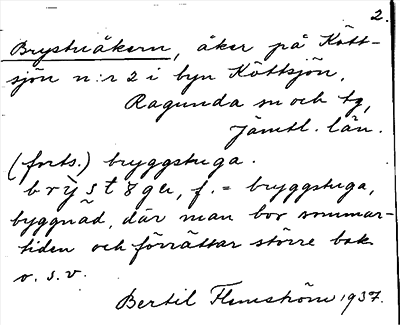 2.
Brystuåkern, åker på Kött-
sjön n:r 2 i byn Köttsjön,
Ragunda sn och tg,
Jämtl. län.
(forts.) bryggstuga.
f. = bryggstuga,
byggnad, där man bor sommar-
tiden och förrättar större bak
o. s. v.
Bertil Flemström 1937.